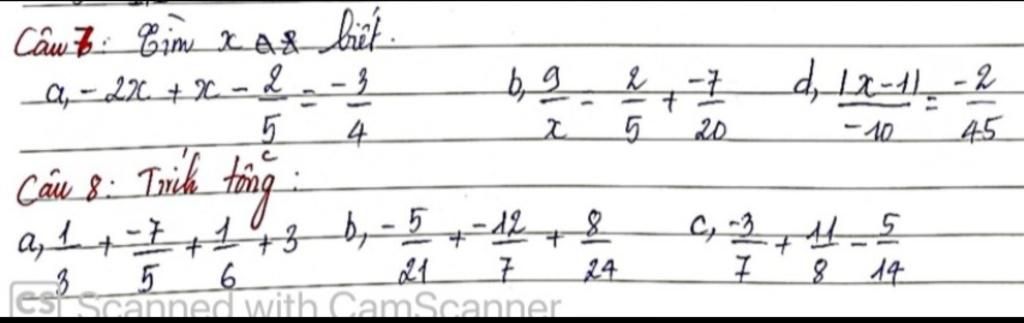 Câu 7: Tìm x biết.
a, - 2x + x - 2/5 = -3/4 b, 9/x = 2/5 + -7/20 d, |x-1|/-10 = -2/45
Câu 8: Tính tổng:
a, 1/3 + -7/5 + 1/6 + 3 b, -5/21 + -12/7 + 8/24 c, -3/7 + 11/8 - 5/14
CS Scanned with CamScanner